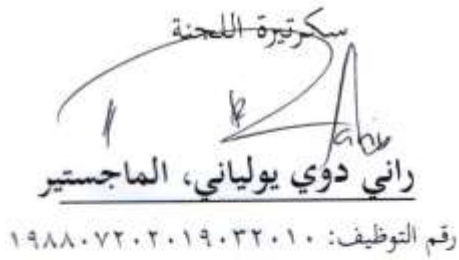 سكرتيرة اللجنة
راني دوي يولياني، الماجستير
رقم التوظيف: ١٩٨٨٠٧٢٠٢٠١٩٠٣٢٠١٠